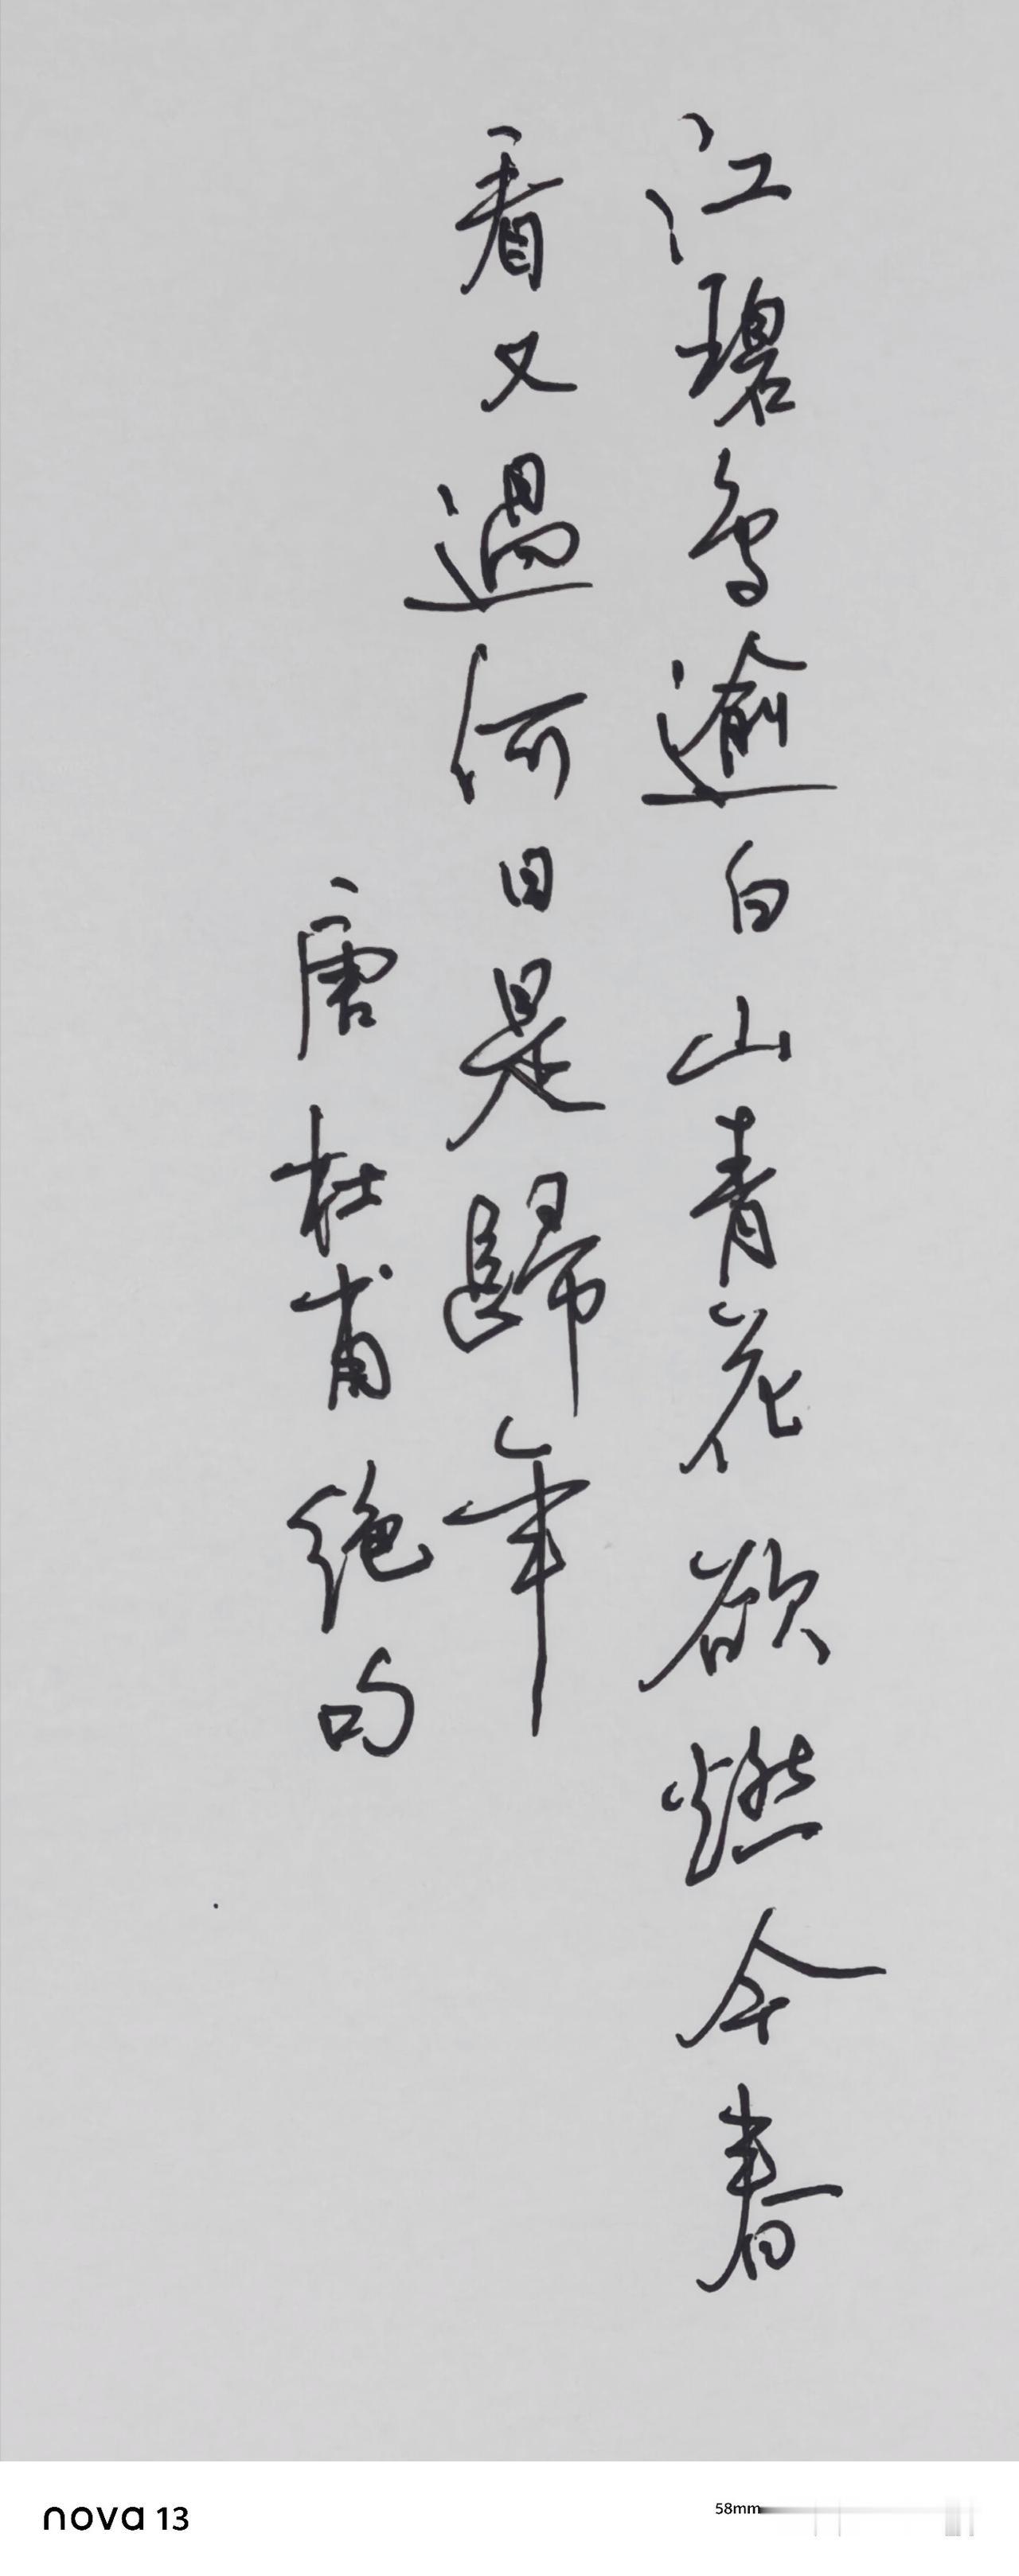 江碧鸟逾白山青花欲燃今春
看又過何日是歸年
唐杜甫绝句
nova 13
58mm